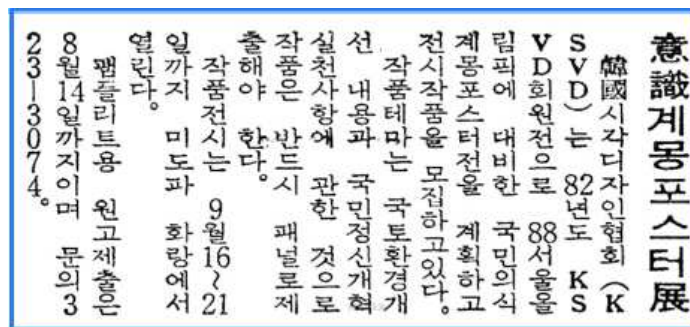 意識계몽포스터展
韓國시각디자인협회 (K
SVD)는 82년도 KS
VD회원전으로 88서울올
림픽에 대비한 국민의식
계몽포스터전을 계획하고
전시작품을 모집하고있다.
작품테마는 국토환경개
선 내용과 국민정신개혁
실천사항에 관한 것으로
작품은 반드시 패널로제
출해야 한다.
작품전시는 9월16~21
일까지 미도파 화랑에서
열린다.
팸플리트용 원고제출은
8월14일까지이며 문의3
23-3074.